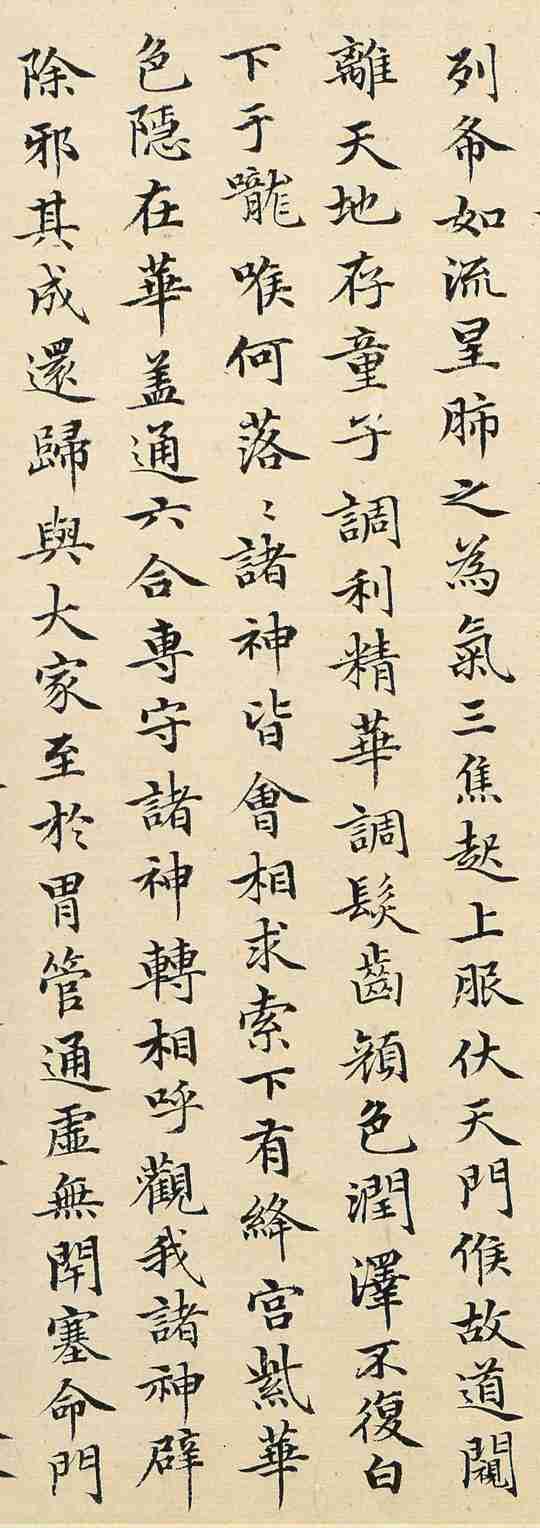 列布如流星肺之為氣三焦起上服伏天門候故道闚
離天地存童子調利精華調髮齒顏色潤澤不復白
下于嚨喉何落〻諸神皆會相求索下有絳宮紫華
色隱在華蓋通六合專守諸神轉相呼觀我諸神辟
除邪其成還歸與大家至於胃管通虛無閉塞命門